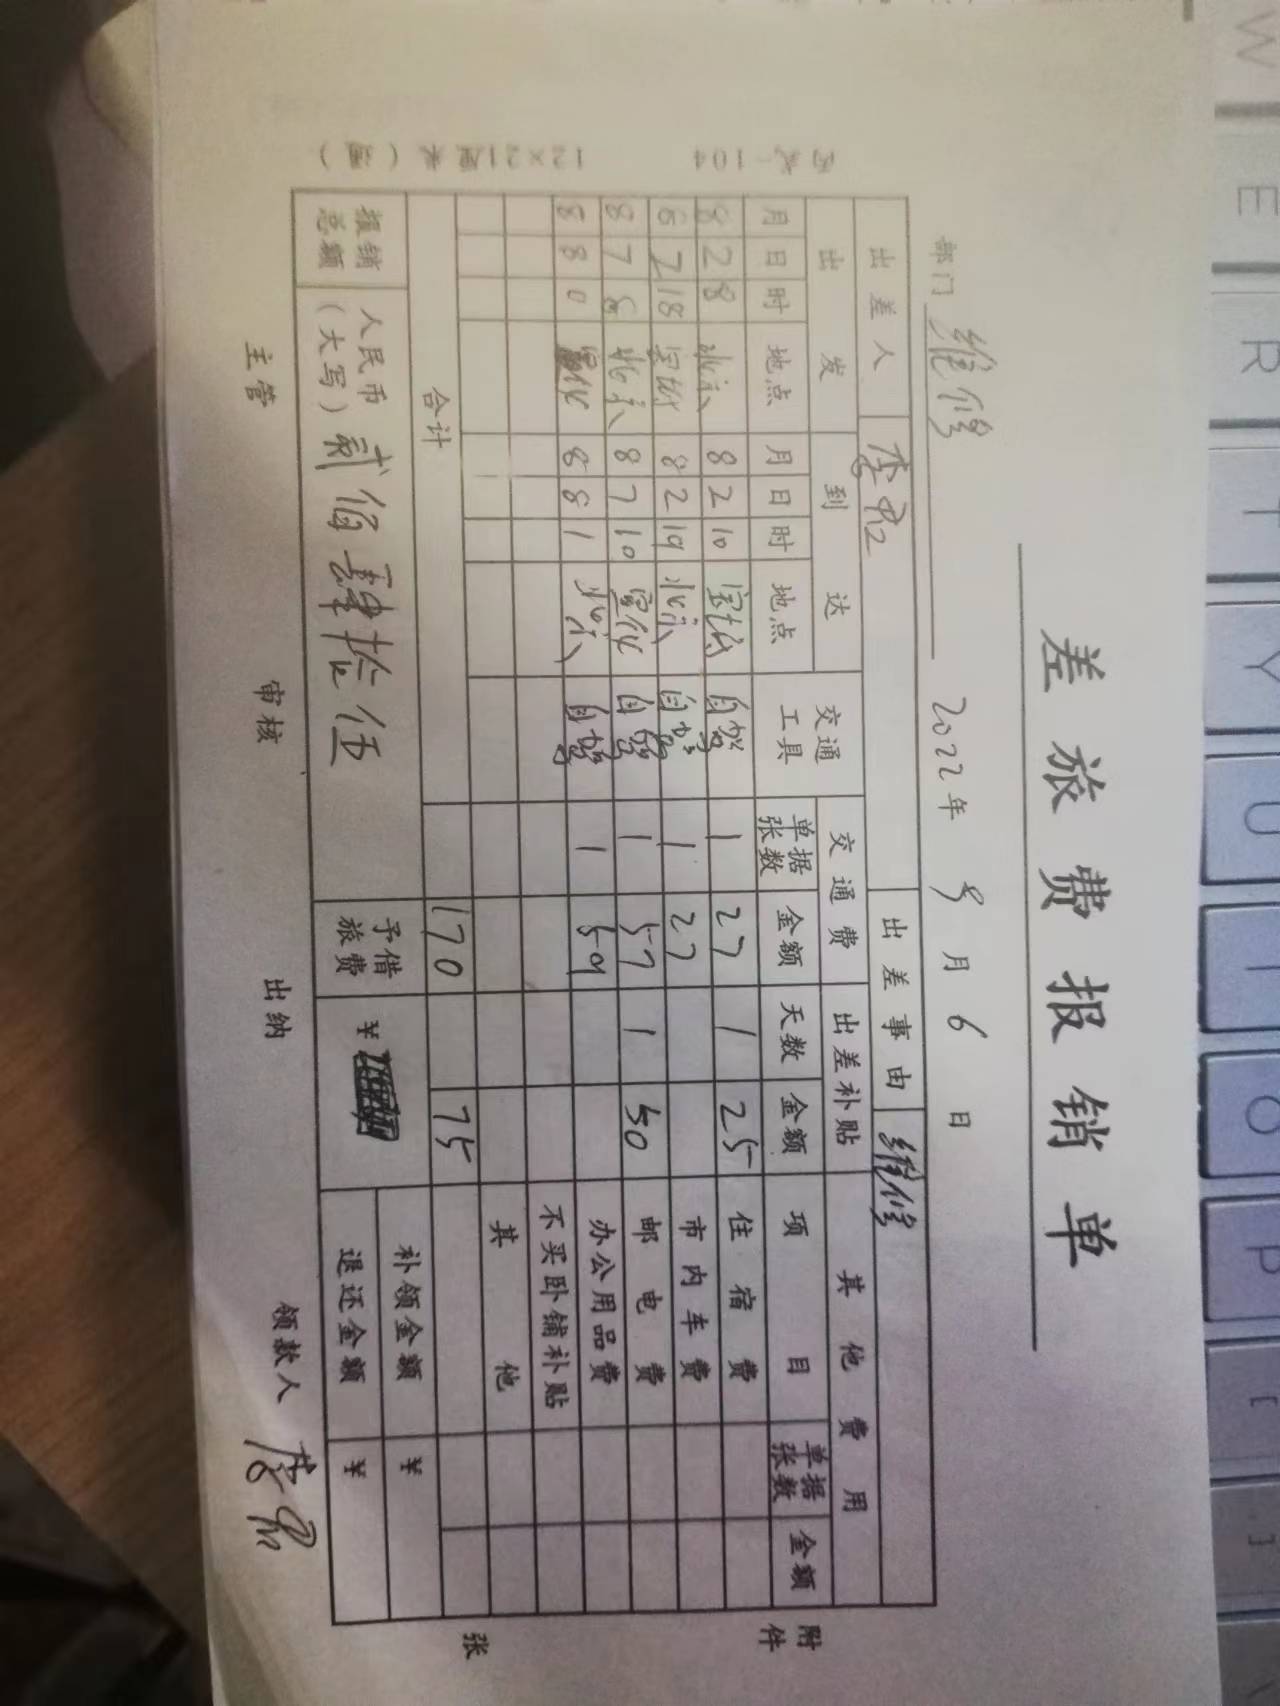 差旅费报销单
部门 维修 2022年 8月 6 日
出差人 出差事由 维修
出发 到达 交通工具 交通费 出差补贴 其他费用
月 日 时 地点 月 日 时 地点 单据张数 金额 天数 金额 项目 单据张数 金额
8 2 8 北京 8 2 10 宝坻 自驾 1 27 1 25 住宿费
8 2 18 宝坻 8 2 19 北京 自驾 1 27 市内车费
8 7 8 北京 8 7 10 宣化 自驾 1 57 1 50 邮电费
8 8 0 宣化 8 8 1 北京 自驾 1 59 办公用品费
不买卧铺补贴
其他
合计 170 75
报销总额 人民币(大写) 贰佰肆拾伍 予借旅费 ¥ 补领金额 ¥
退还金额 ¥
主管 审核 出纳 领款人
附件 张